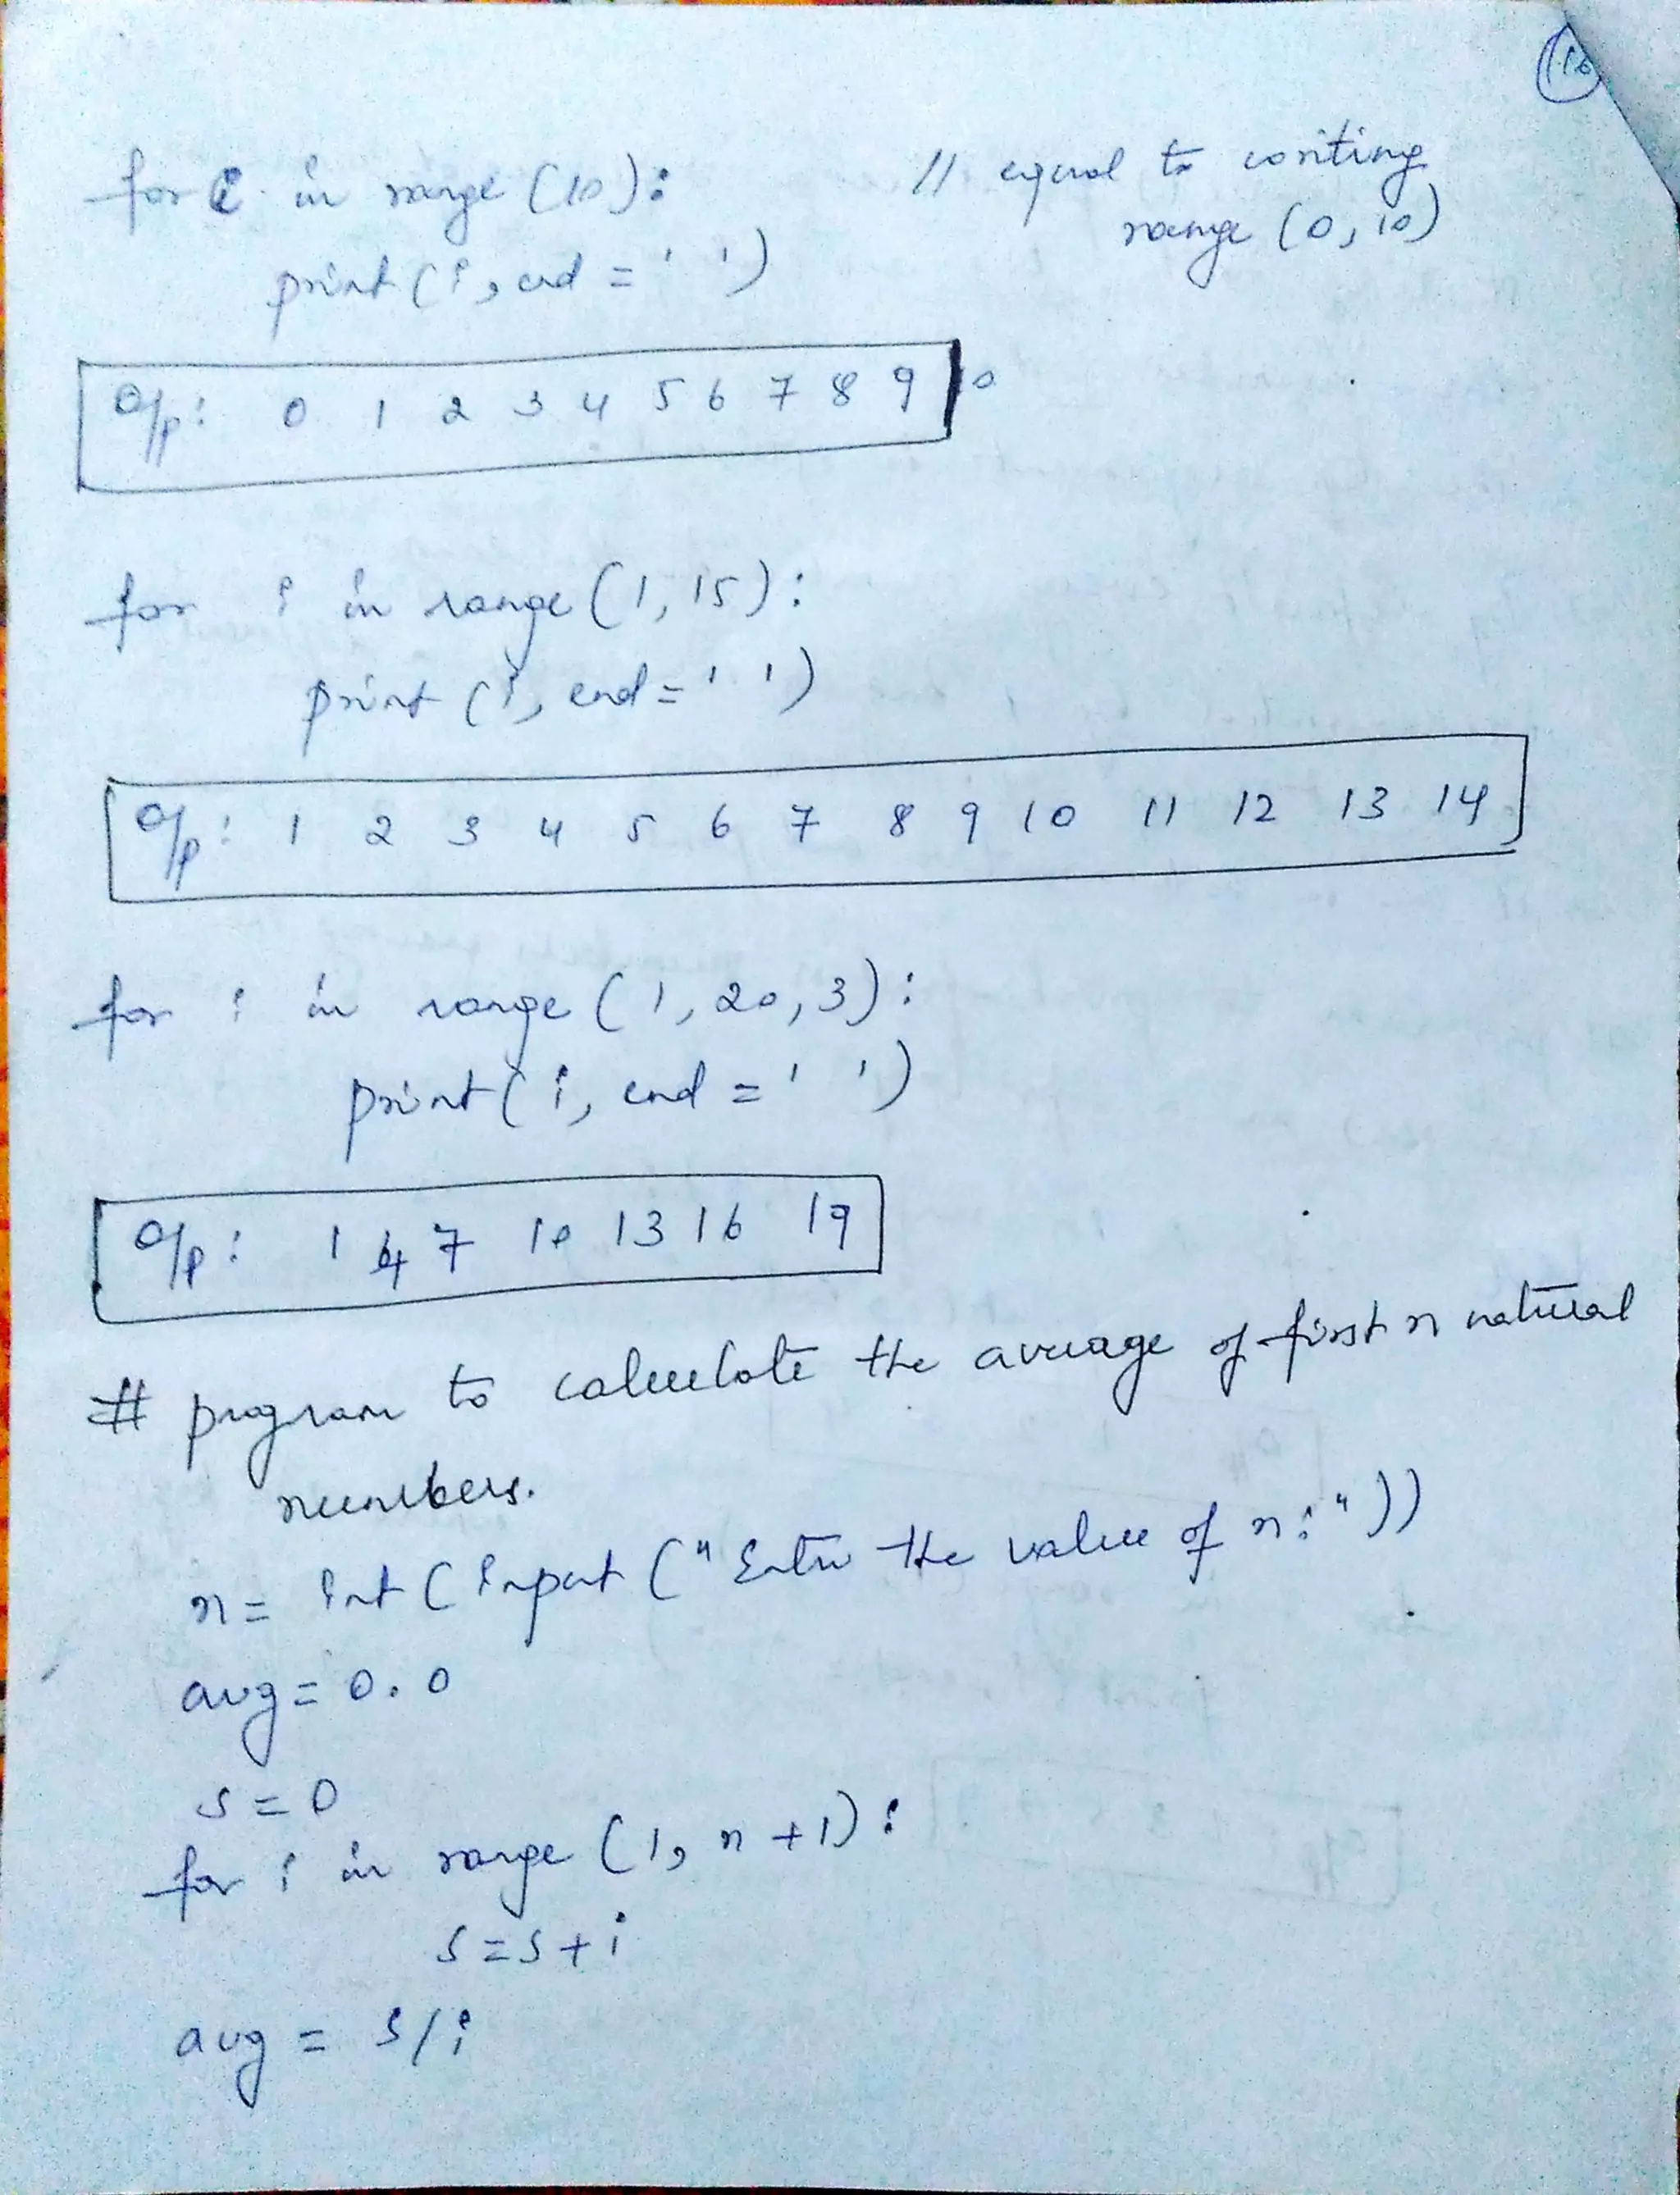 for i in range (10): // equal to writing
range (0, 10)
print (i, end = ' ')
O/p: 0 1 2 3 4 5 6 7 8 9
for i in range (1, 15):
print (i, end = ' ')
O/p: 1 2 3 4 5 6 7 8 9 10 11 12 13 14
for i in range (1, 20, 3):
print (i, end = ' ')
O/p: 1 4 7 10 13 16 19
# program to calculate the average of first n natural
numbers.
n = int (input ("Enter the value of n:"))
avg = 0.0
s = 0
for i in range (1, n+1):
s = s + i
avg = s/i